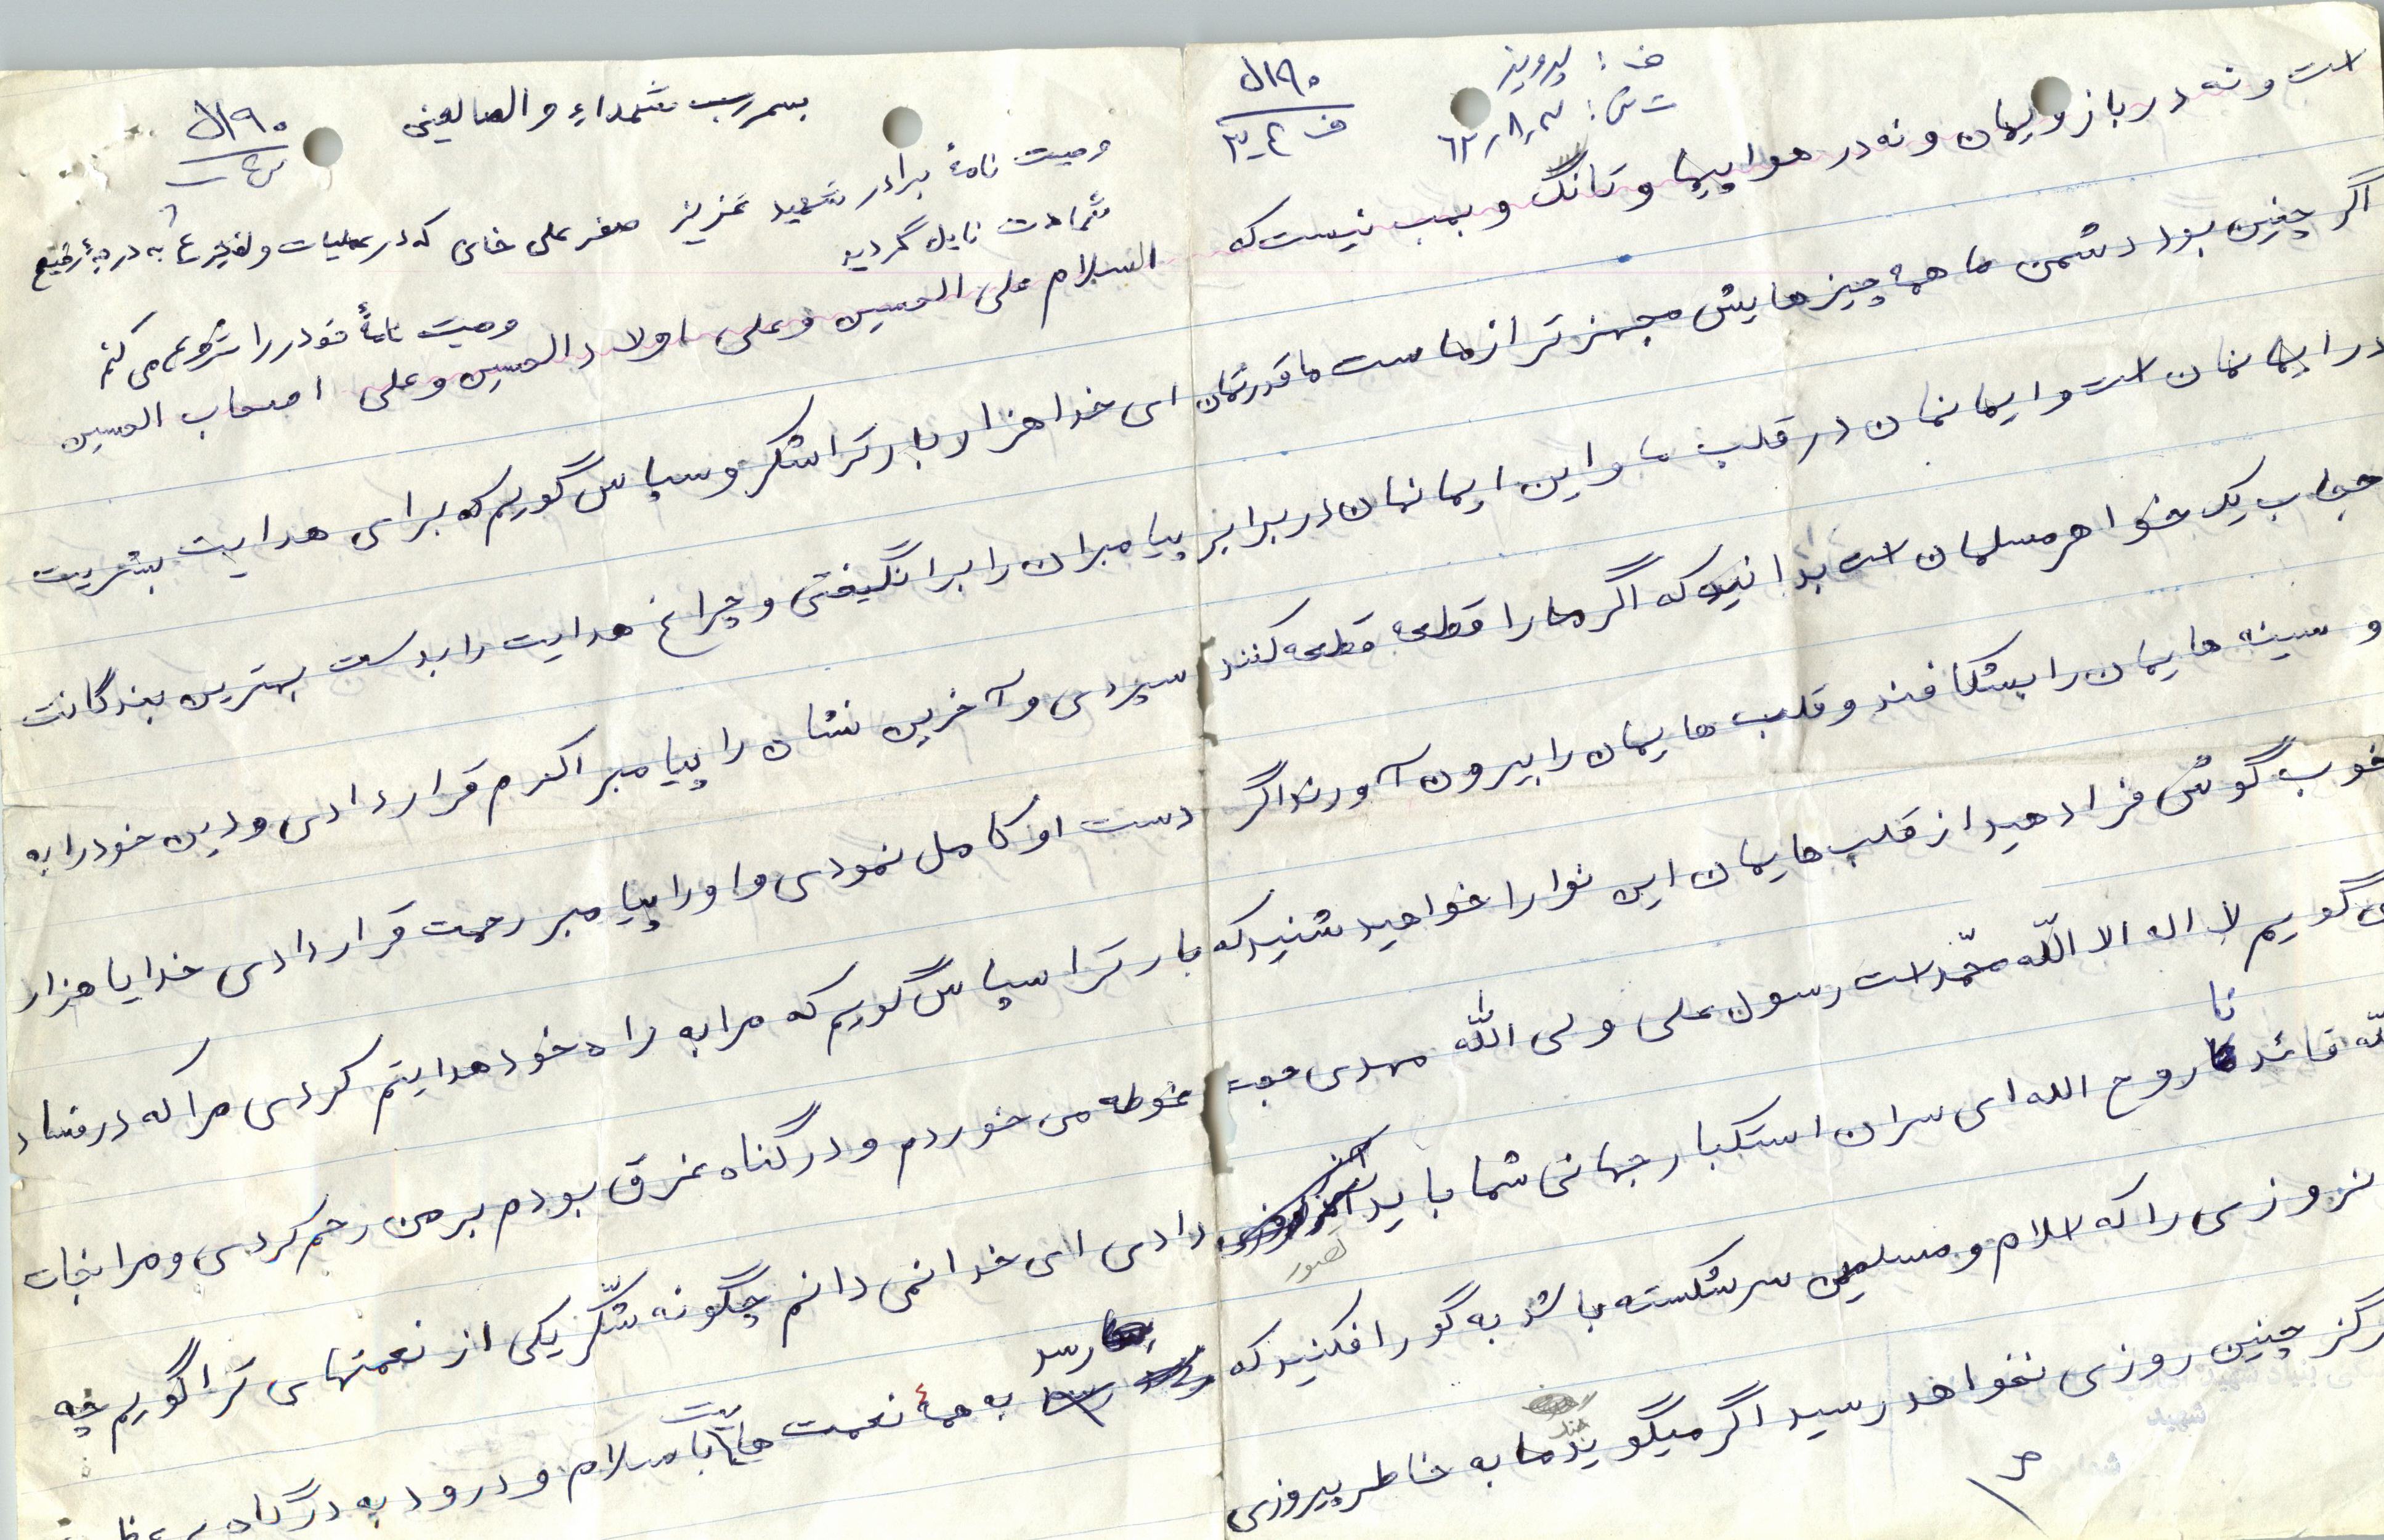 بسم رب شهداء و الصالحین
۱۹۰ل
وصیت نامهٔ برادر شهید عزیز صفر علی خانی که در عملیات والفجر ۴ به درجهٔ رفیع
شهادت نایل گردید
السلام علی الحسین و علی اولاد الحسین و علی اصحاب الحسین
وصیت نامهٔ خود را شروع می کنم
ای خدا هزار بار ترا شکر و سپاس گویم که برای هدایت بشریت
پیامبران را برانگیختی و چراغ هدایت را بدست بهترین بندگانت
سپردی و آخرین نشان را پیامبر اکرم قرار دادی و دین خود را به
دست او کامل نمودی و او را پیامبر رحمت قرار دادی خدایا هزار
بار ترا سپاس گویم که مرا به راه خود هدایتم کردی مرا که در فساد
غوطه می خوردم و در گناه غرق بودم بر من رحم کردی و مرا نجات
دادی ای خدا نمی دانم چگونه شکر یکی از نعمتهای ترا گویم چه
رسد به همهٔ نعمت هایت با سلام و درود به درگاه
ف : پرویز
ت ش : ۶۲٫۸٫۳
۱۹۰ل
ف ۴ـ۳
است و نه در بازویمان و نه در هواپیما و تانگ و بمب نیست که
اگر چنین بود دشمن ما همه چیز هایش مجهز تر از ماست ما قدرتمان
در ایمانمان است و ایمانمان در قلب ما و این ایمانمان در برابر
حجاب یک خواهر مسلمان است بدانید که اگر ما را قطعه قطعه کنند
و سینه هایمان را بشکافند و قلب هایمان را بیرون آورند اگر
خوب گوش فرا دهید از قلب هایمان این نوا را خواهید شنید که
می گویم لا اله الا اللّه محمّد است رسول علی ولی اللّه مهدی حجت
للّه قائدنا روح الله ای سران استکبار جهانی شما باید تصور
روزی را که اسلام و مسلمین سرشکسته باشد به گور افکنید که
هرگز چنین روزی نخواهد رسید اگر میگویند جنگ ما به خاطر پیروزی
۳